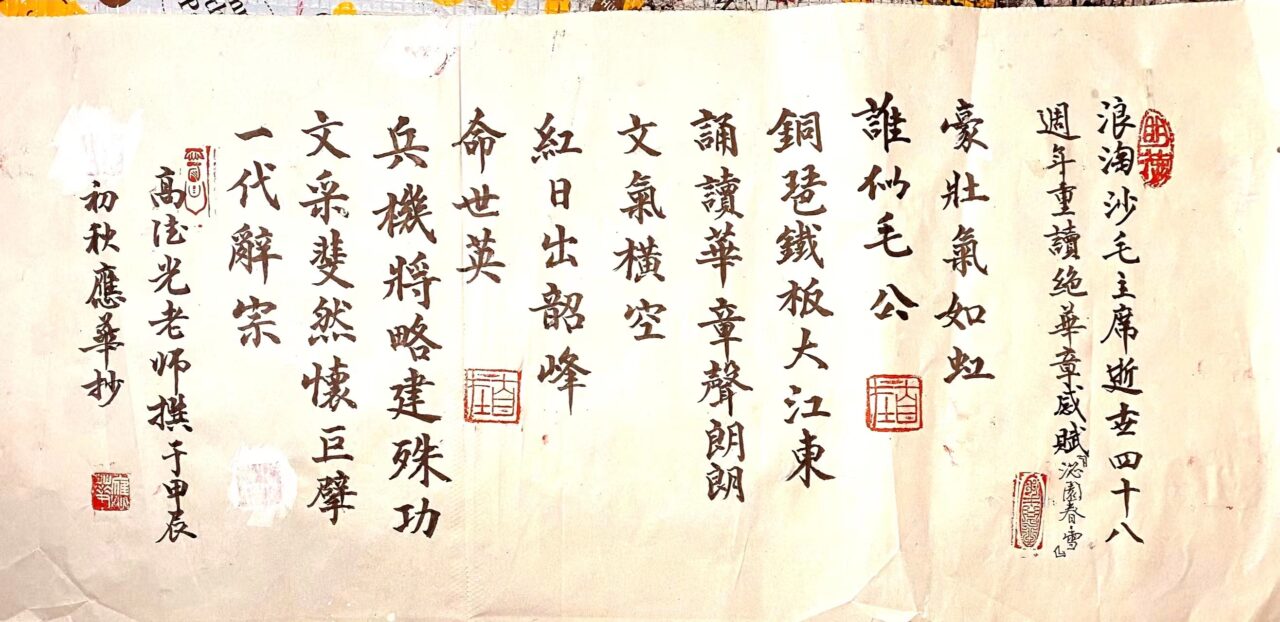 浪淘沙毛主席逝世四十八
週年重讀絶華章感賦沁園春雪
豪壯氣如虹
誰似毛公
銅琶鐵板大江東
誦讀華章聲朗朗
文氣橫空
紅日出韶峰
命世英
兵機將略建殊功
文采斐然懷巨擘
一代辭宗
高法光老师撰于甲辰
初秋應華抄